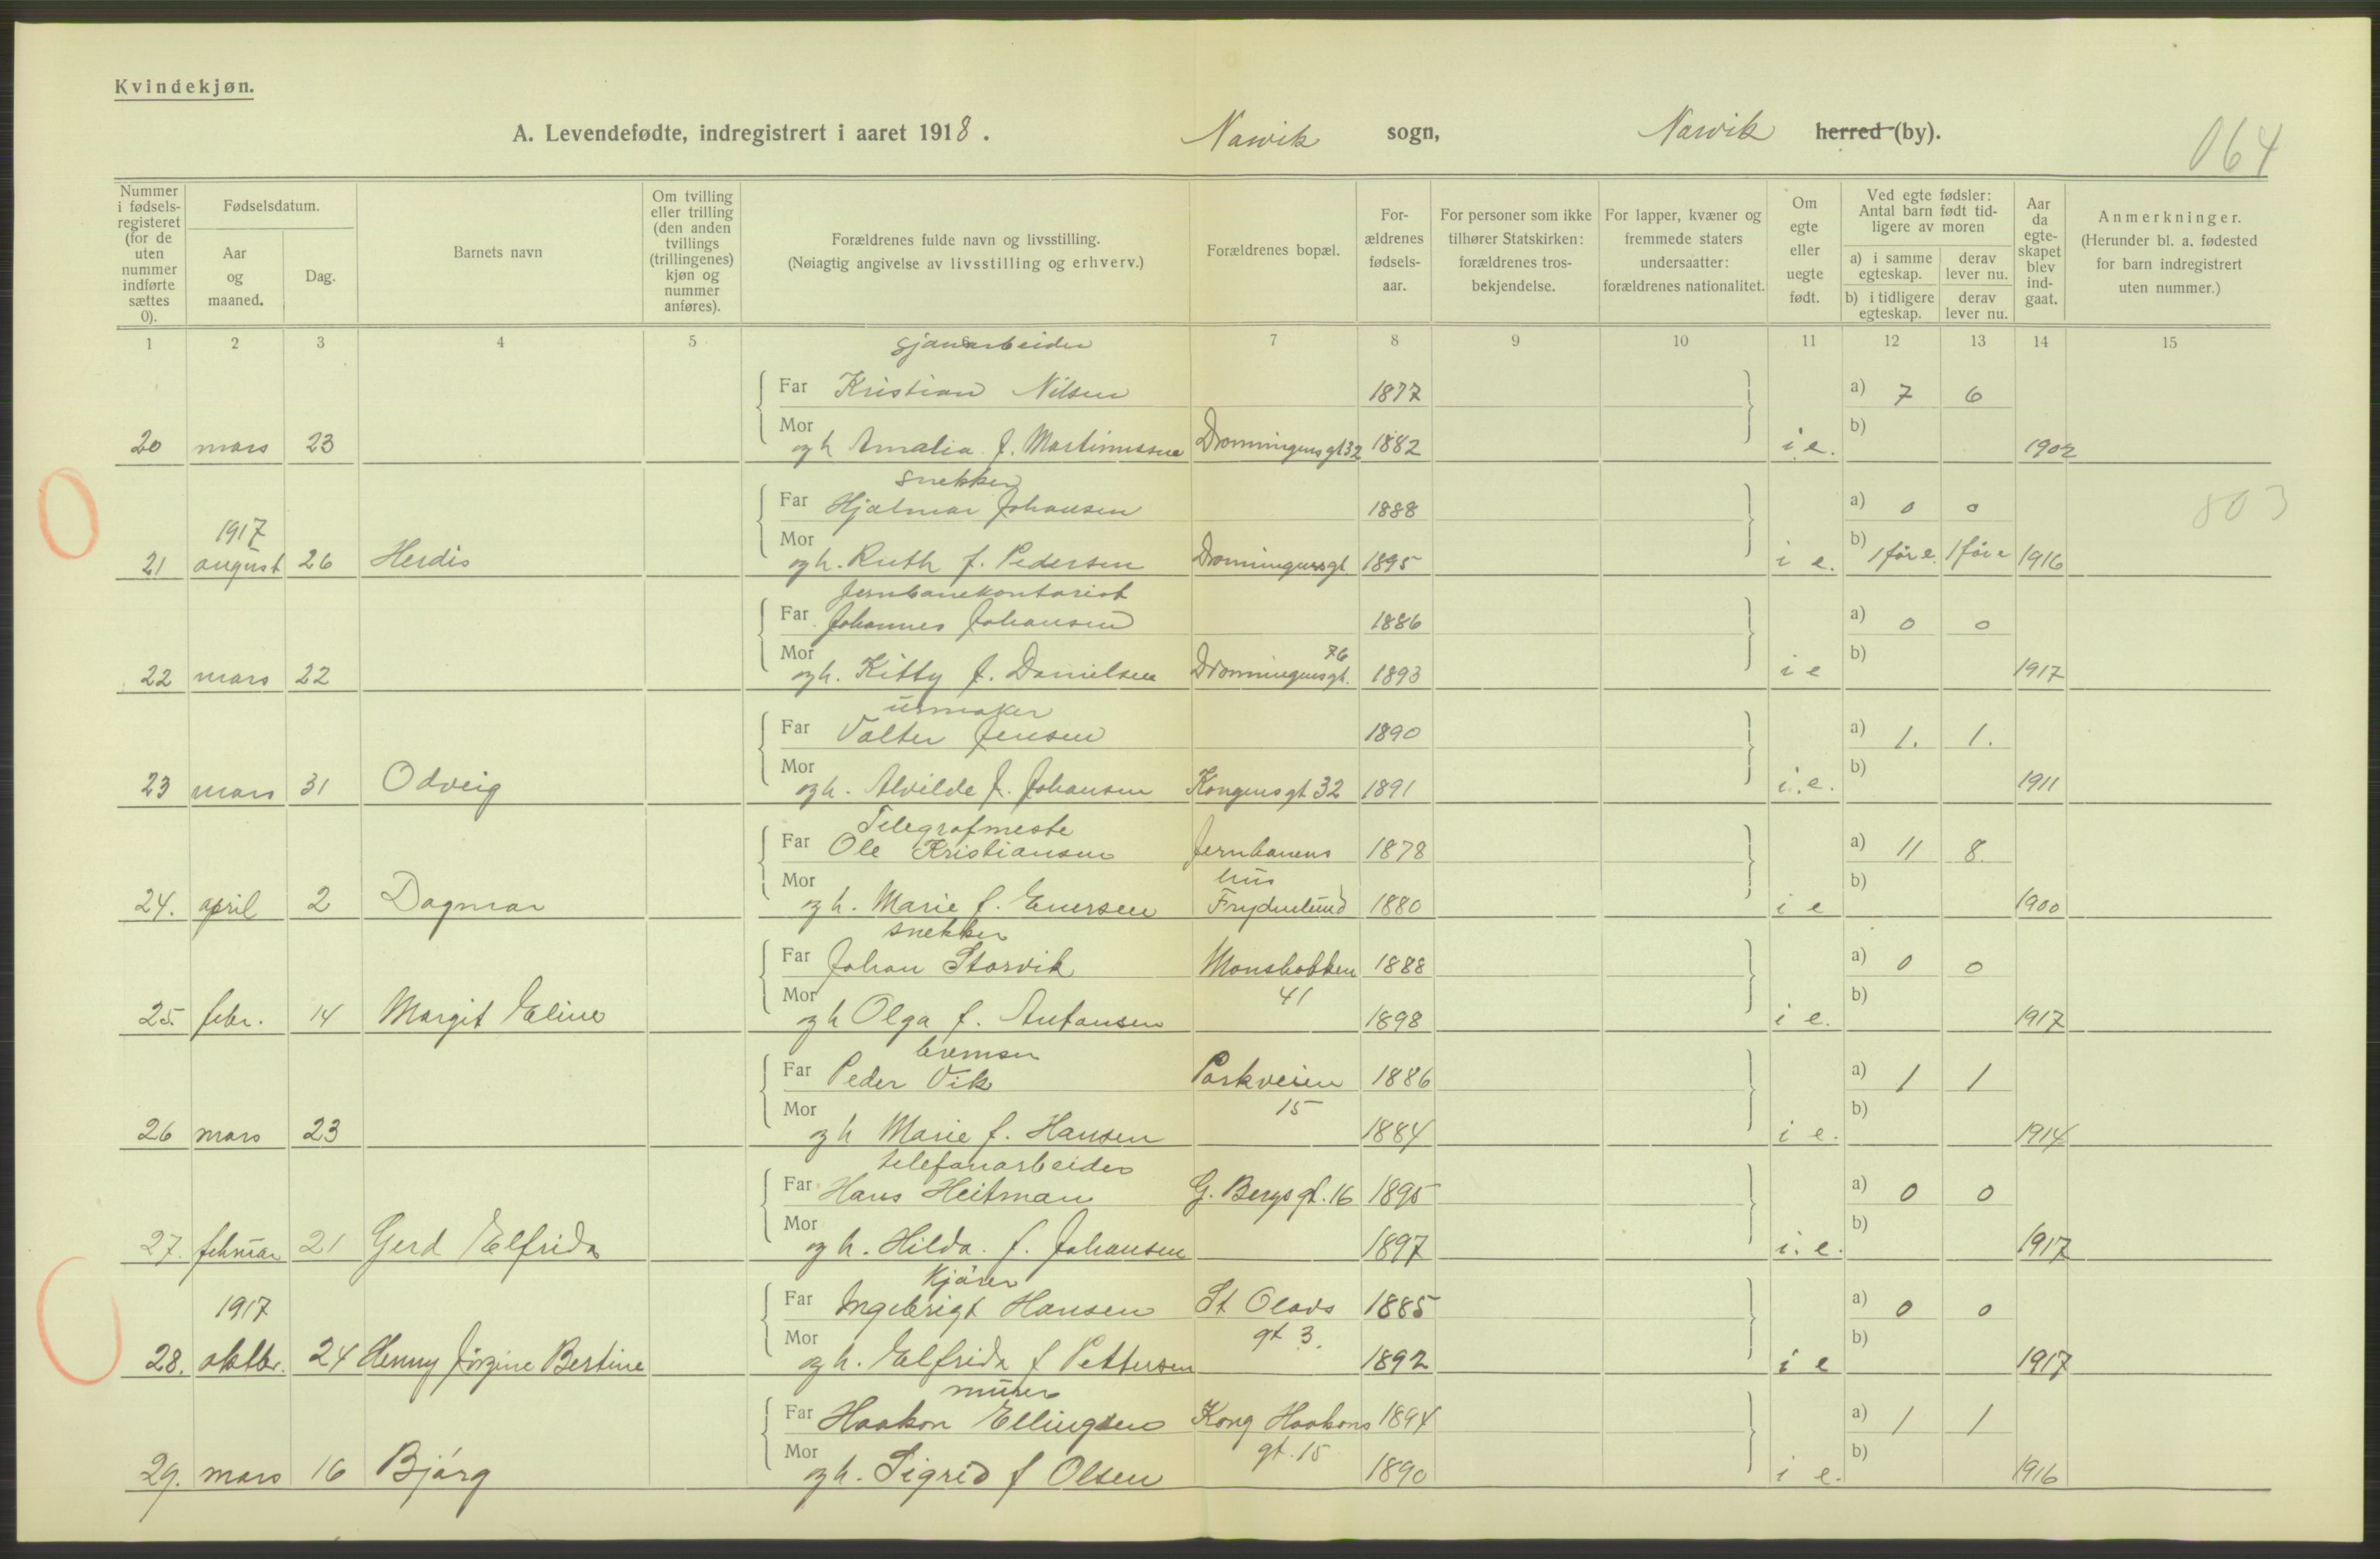 Kvindekjøn.
A. Levendefødte, indregistrert i aaret 1918. Narvik sogn, Narvik herred (by).
064
Nummer i fødselsregisteret (for de uten nummer indførte sættes 0).
Fødselsdatum.
Aar og maaned.
Dag.
Barnets navn
Om tvilling eller trilling (den anden tvillings (trillingenes) kjøn og nummer anføres).
Forældrenes fulde navn og livsstilling.
(Nøiagtig angivelse av livsstilling og erhverv.)
Forældrenes bopæl.
Forældrenes fødselsaar.
For personer som ikke tilhører Statskirken: forældrenes trosbekjendelse.
For lapper, kvæner og fremmede staters undersaatter: forældrenes nationalitet.
Om egte eller uegte født.
Ved egte fødsler: Antal barn født tidligere av moren
a) i samme egteskap.
derav lever nu.
b) i tidligere egteskap.
derav lever nu.
Aar da egteskapet blev indgaat.
Anmerkninger.
(Herunder bl. a. fødested for barn indregistrert uten nummer.)
1 2 3 4 5 6 7 8 9 10 11 12 13 14 15
sjauarbeider
Far Kristian Nilsen 1877 a) 7 6
20 mars 23 Mor og h Amalia f. Martinussen Dronningensgt 32 1882 i e. b) 1902
snekker
Far Hjalmar Johansen 1888 a) 0 0
803
1917
21 august 26 Herdis Mor og h. Ruth f. Pedersen Dronningensgt 1895 i e. b) 1 før e. 1 før e 1916
Jernbanekontorist
Far Johannes Johansen 1886 a) 0 0
76
22 mars 22 Mor og h. Kitty f. Danielsen Dronningensgt. 1893 i e b) 1917
urmaker
Far Valter Jensen 1890 a) 1. 1.
23 mars 31 Odveig Mor og h. Alvilde f. Johansen Kongensgt 32 1891 i. e. b) 1911
Telegrafmeste
Far Ole Kristiansen Jernbanens 1878 a) 11 8.
hus
24. april 2 Dagmar Mor og h. Marie f. Enersen Frydenlund 1880 i e b) 1900
snekker
Far Johan Storvik Monsbakken 1888 a) 0 0
41
25. febr. 14 Margit Eline Mor og h Olga f. Antonsen 1898 i e. b) 1917
bremser
Far Peder Vik Parkveien 1886 a) 1 1
15
26 mars 23 Mor og h Marie f. Hansen 1884 i e. b) 1914
telefonarbeider
Far Hans Heitman G. Bergs gt. 16 1895 a) 0 0
27. februar 21 Gerd Elfrida Mor og h. Hilda f. Johansen 1897 i. e. b) 1917
Kjører
Far Ingebrigt Hansen St Olavs 1885 a) 0 0
1917
gt 3.
28. oktbr. 24 Henny Jörgine Bertine Mor og h. Elfrida f Pettersen 1892 i e b) 1917
murer
Far Haakon Ellingsen Kong Haakons 1894 a) 1 1
gt. 15
29. mars 16 Bjórg Mor og h. Sigrid f Olsen 1890 i e. b) 1916